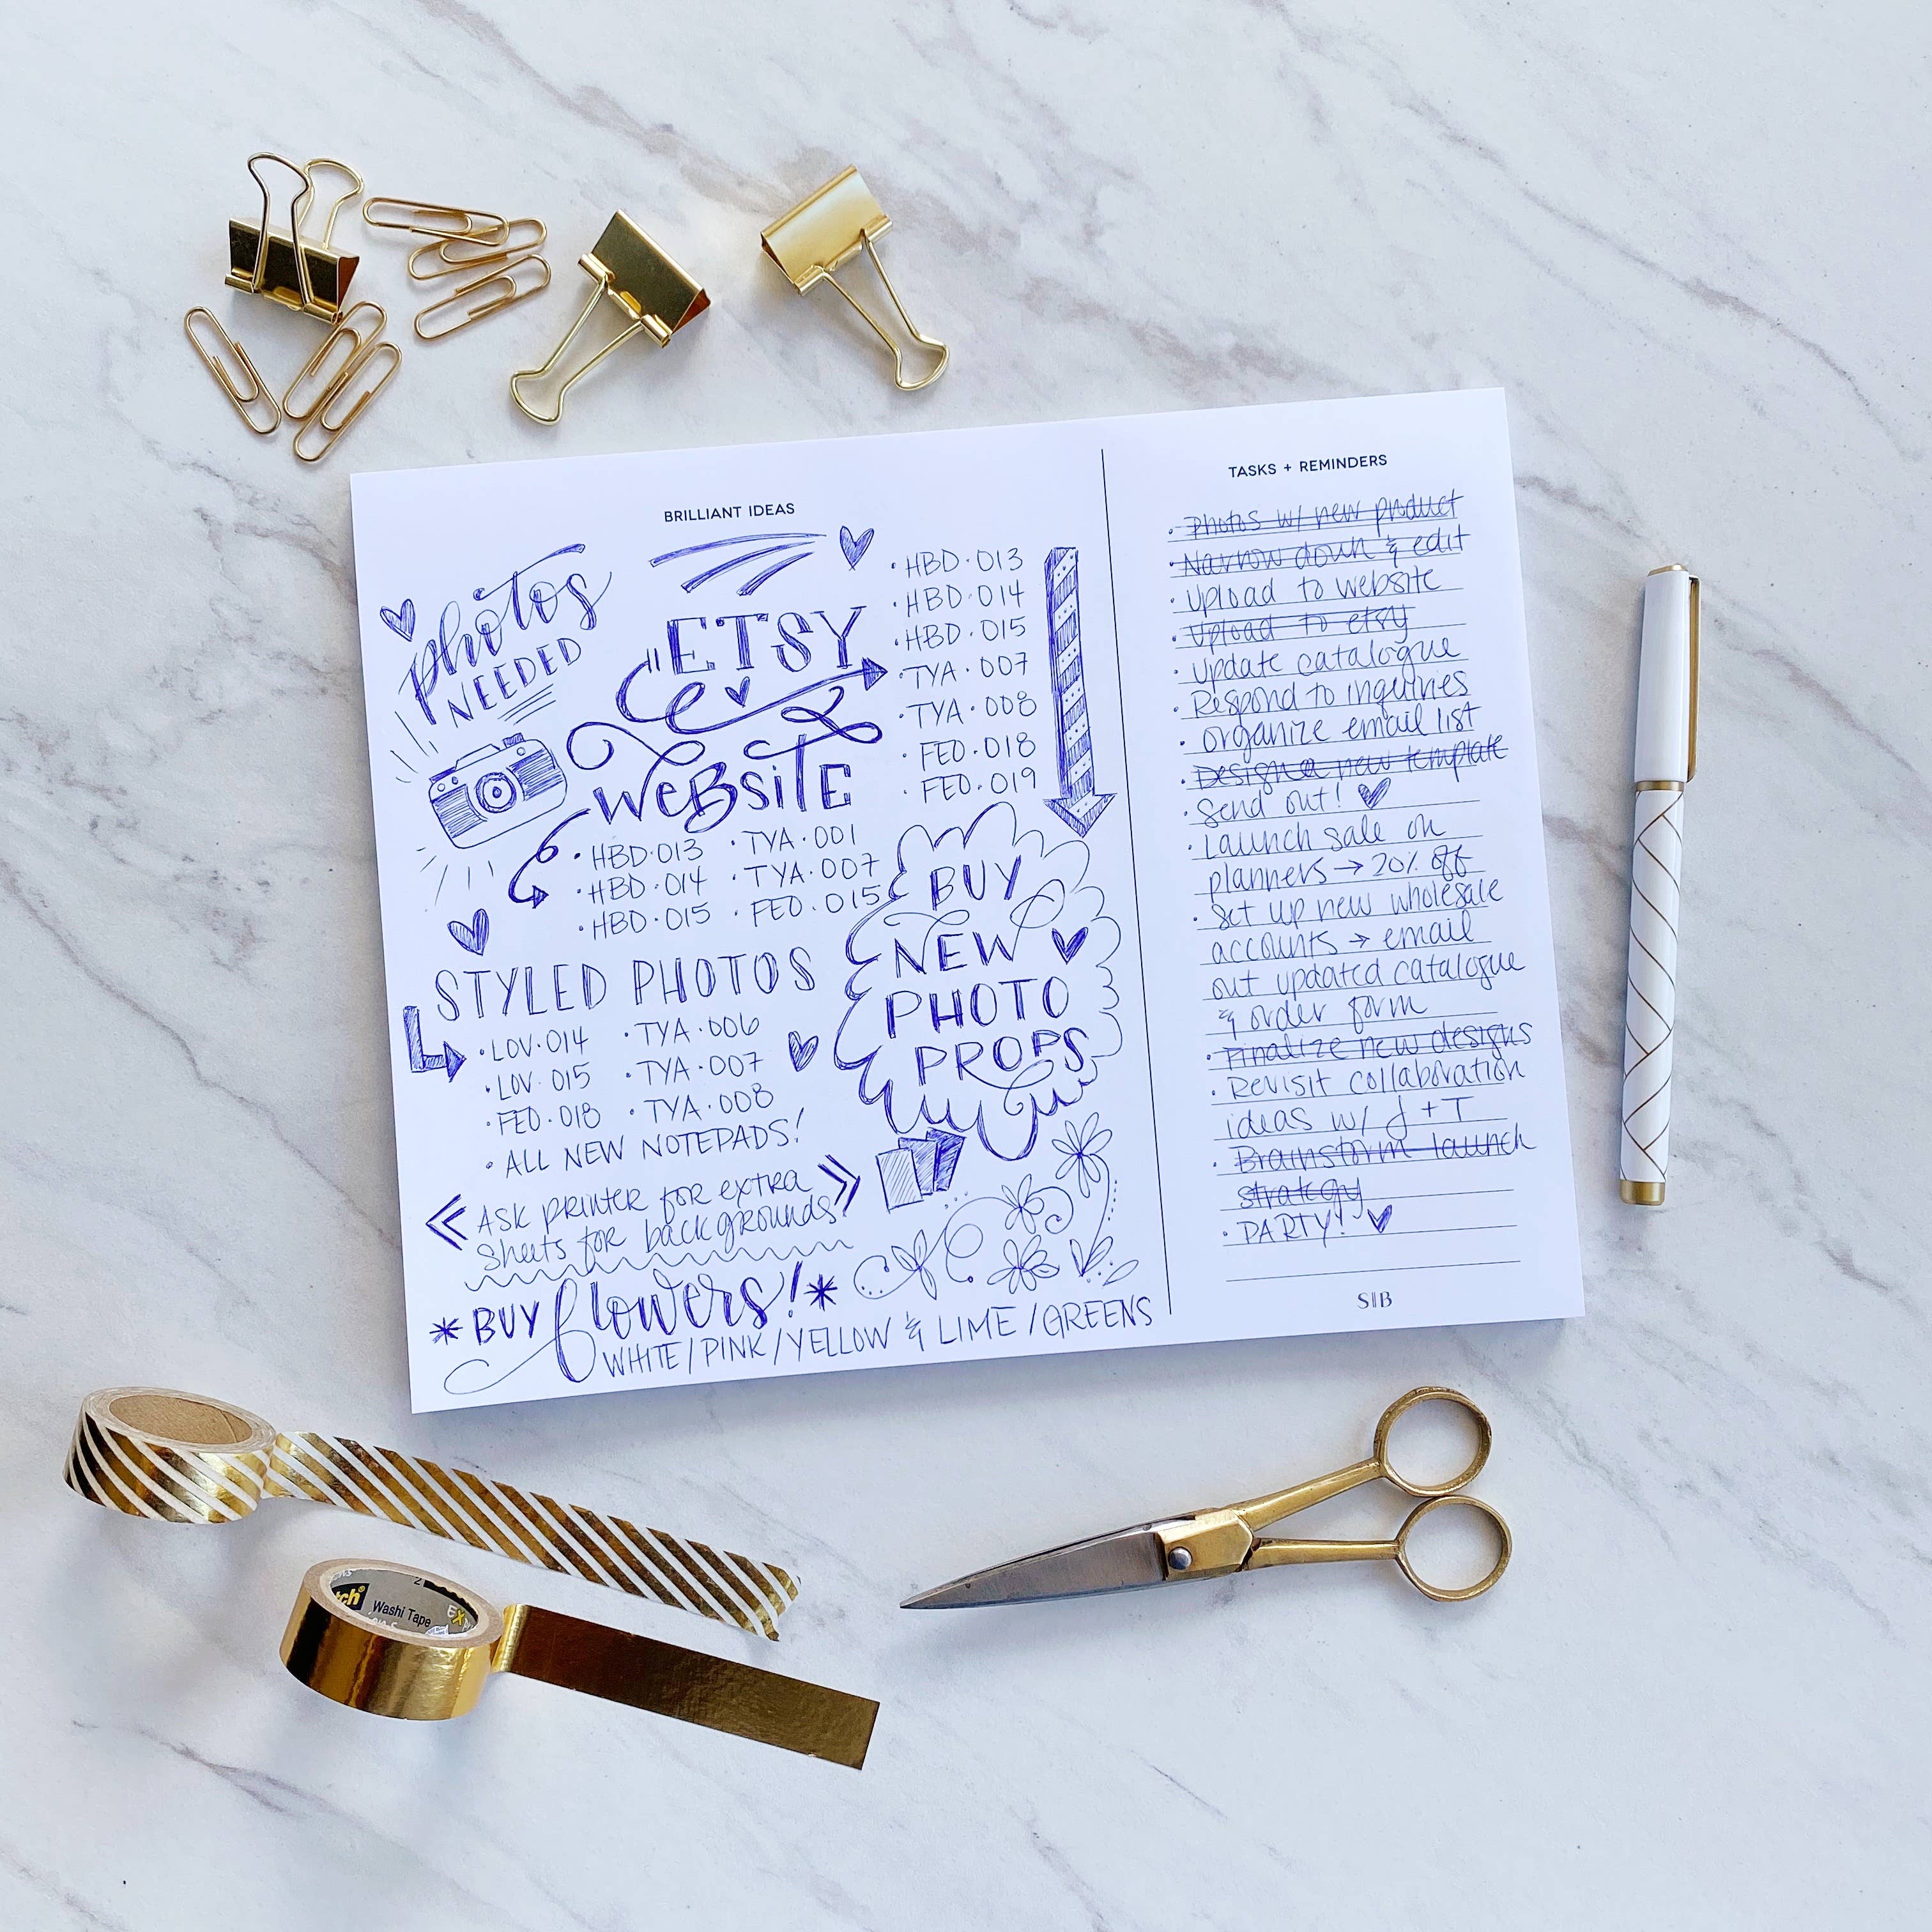 BRILLIANT IDEAS
photos
NEEDED
ETSY
WEBSITE
• HBD·013
• HBD·014
• HBD·015
• TYA·007
• TYA·008
• FEO·018
• FEO·019
• HBD·013
• HBD·014
• HBD·015
• TYA·001
• TYA·007
• FEO·015
BUY
NEW
PHOTO
PROPS
STYLED PHOTOS
• LOV·014
• LOV·015
• FEO·018
• TYA·006
• TYA·007
• TYA·008
• ALL NEW NOTEPADS!
« ASK printer for extra »
sheets for backgrounds
* BUY flowers! *
WHITE/PINK/YELLOW & LIME/GREENS
TASKS + REMINDERS
• Photos w/ new product
• Narrow down & edit
• Upload to website
• Upload to etsy
• Update catalogue
• Respond to inquiries
• Organize email list
• Design a new template
• Send out! ♥
• Launch sale on
planners → 20% off
• Set up new wholesale
accounts → email
out updated catalogue
& order form
• Finalize new designs
• Revisit collaboration
ideas w/ J + T
• Brainstorm launch
strategy
• PARTY! ♥
S|B
Washi Tape